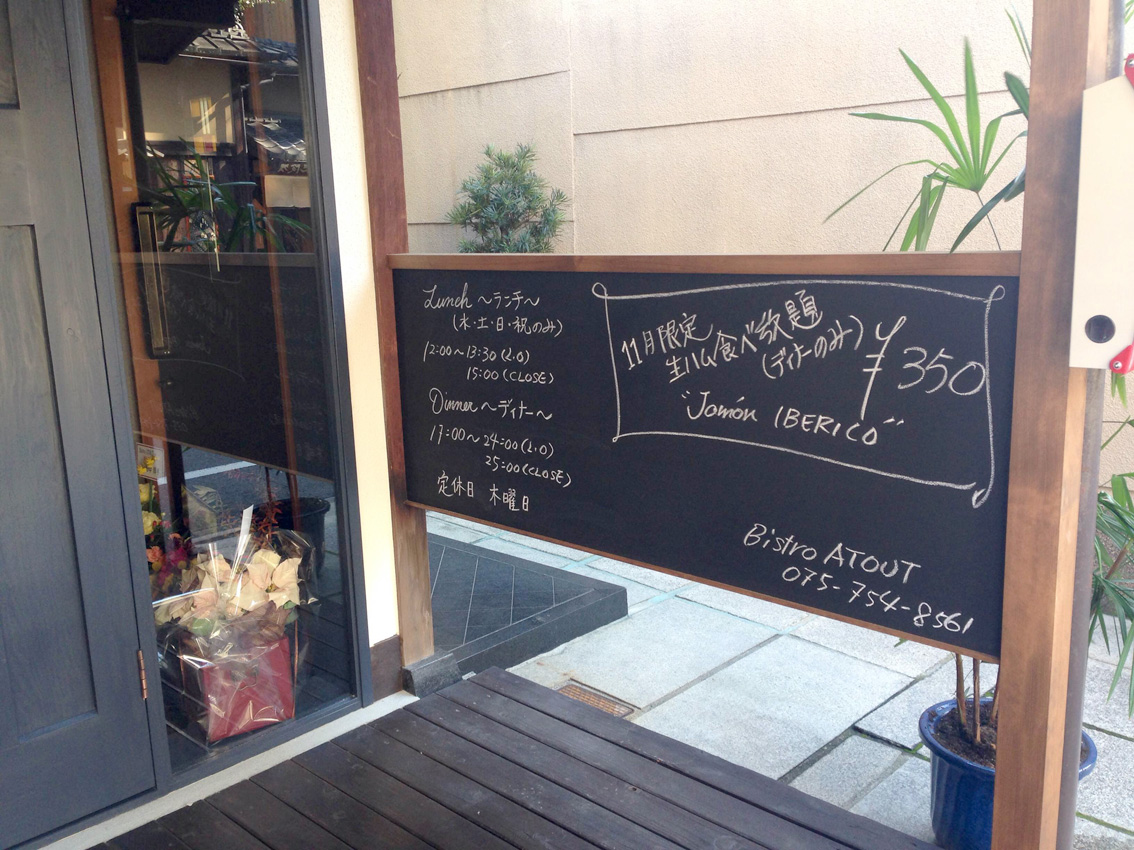 Lunch ～ランチ～
(水・土・日・祝のみ)
12:00～13:30 (L.O)
15:00 (CLOSE)
Dinner ～ディナー～
17:00～24:00 (L.O)
25:00 (CLOSE)
定休日 木曜日
11月限定
生ハム食べ放題
(ディナーのみ)
¥350
"Jamón IBERICO"
Bistro ATOUT
075-754-8561